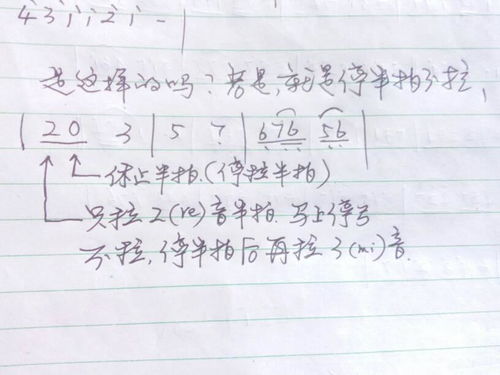 4 3 i i 2 i - |
是这样的吗?若是,就是停半拍不拉,
| 2 0 3 | 5 ? | 676 56 |
休止半拍.(停拉半拍)
只拉2(re)音半拍.马上停弓
不拉,停半拍后再拉3(mi)音.